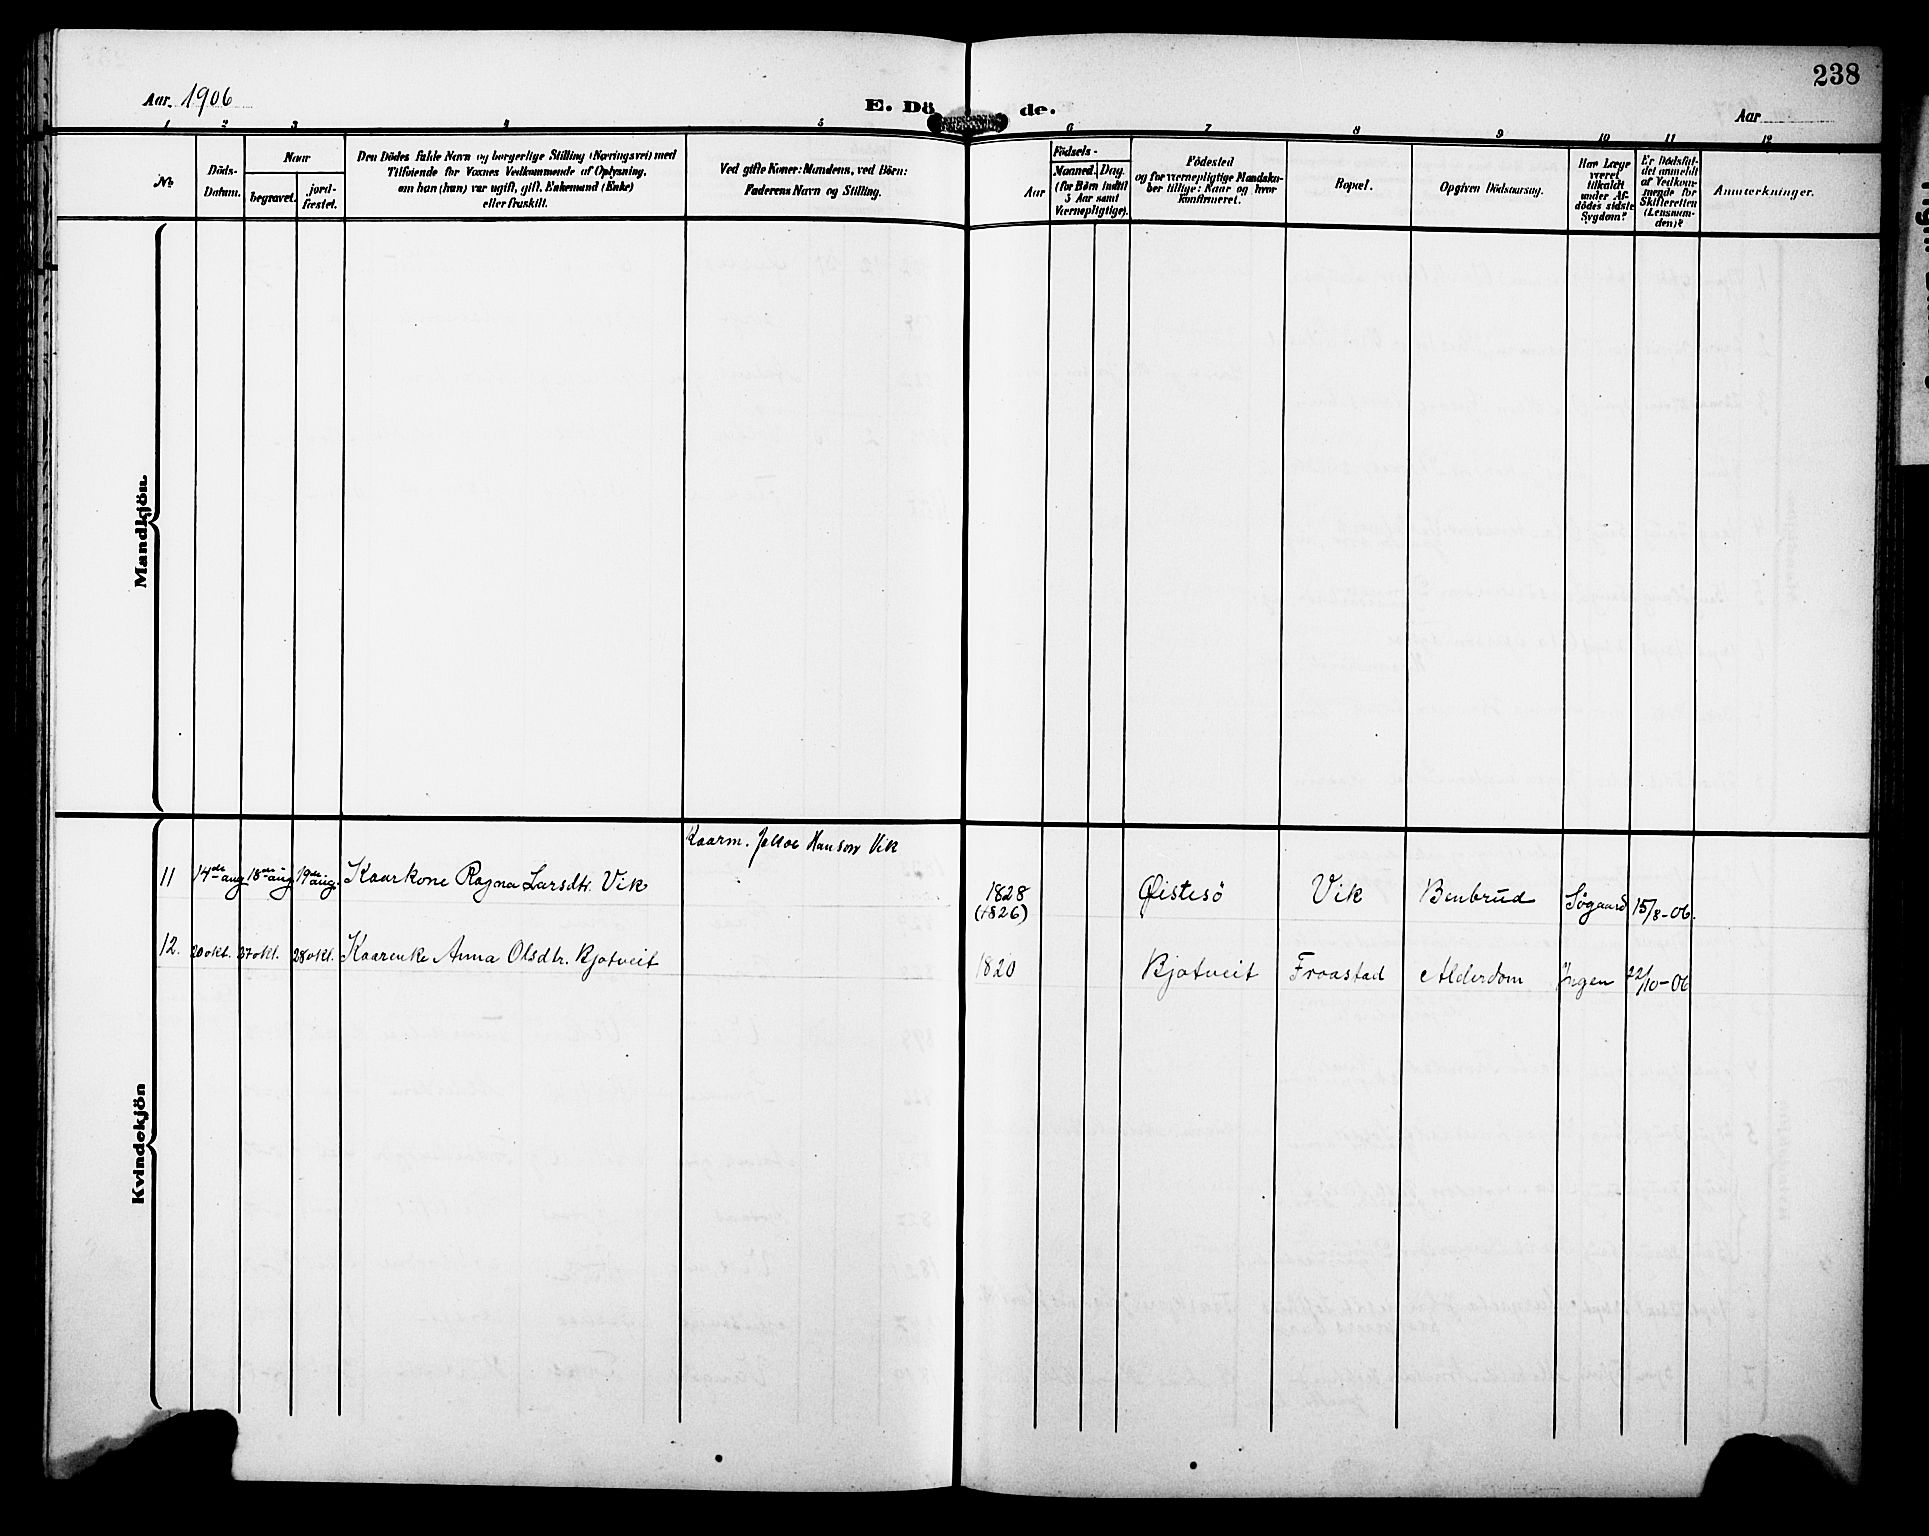 238
Aar 1906
E. Dö de.
Aar
1 2 3 4 5 6 7 8 9 10 11 12
No
Döds-
Datum.
Naar
begravet.
jord-
fæstet.
Den Dödes fulde Navn og borgerlige Stilling (Næringsvei) med
Tilföiende for Voxnes Vedkommende af Oplysning,
om han (hun) var ugift, gift, Enkemand (Enke)
eller fraskilt.
Ved gifte Koner: Mandens, ved Börn:
Faderens Navn og Stilling.
Födsels-
Aar
Maaned. Dag.
(for Börn indtil
5 Aar samt
Værnepligtige).
Födested
og for værnepligtige Mandska-
ber tillige: Naar og hvor
konfirmeret.
Bopæl.
Opgiven Dödsaarsag.
Har Læge
været
tilkaldt
under Af-
dödes sidste
Sygdom?
Er Dödsfal-
det anmeldt
af Vedkom-
mende for
Skifteretten
(Lensman-
den)?
Anmærkninger.
Mandkjön.
Kvindekjön
Kaarm. Jakob Hanson Vik
11 14de aug 18de aug 19de aug. Kaarkone Ragna Larsdtr. Vik 1828 Øistesö Vik Benbrud Søgaard 15/8-06.
(1826)
12. 20 okt. 27 okt. 28 okt. Kaarenke Anna Olsdtr. Bjotveit 1820 Bjotveit Fraastad Alderdom Ingen 22/10-06